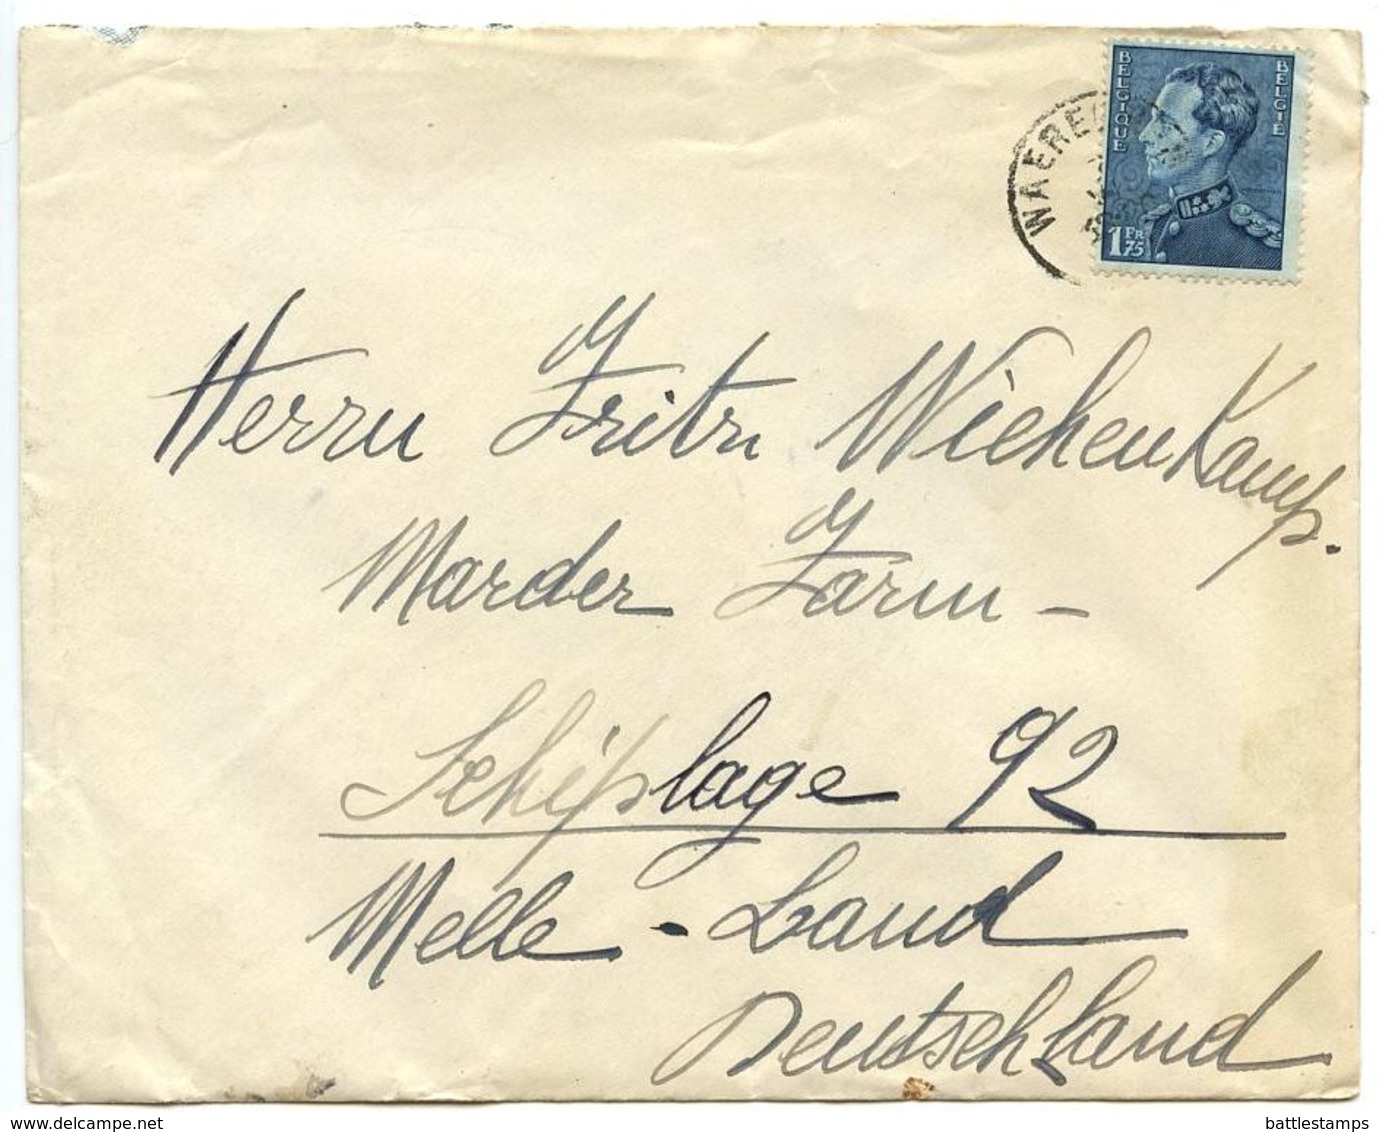 BELGIQUE
BELGIË
1 FR 75
Herrn Fritz Wiehenkamp.
Marder Farm -
Schiplage 92
Melle - Land
Deutschland
www.delcampe.net
battlestamps